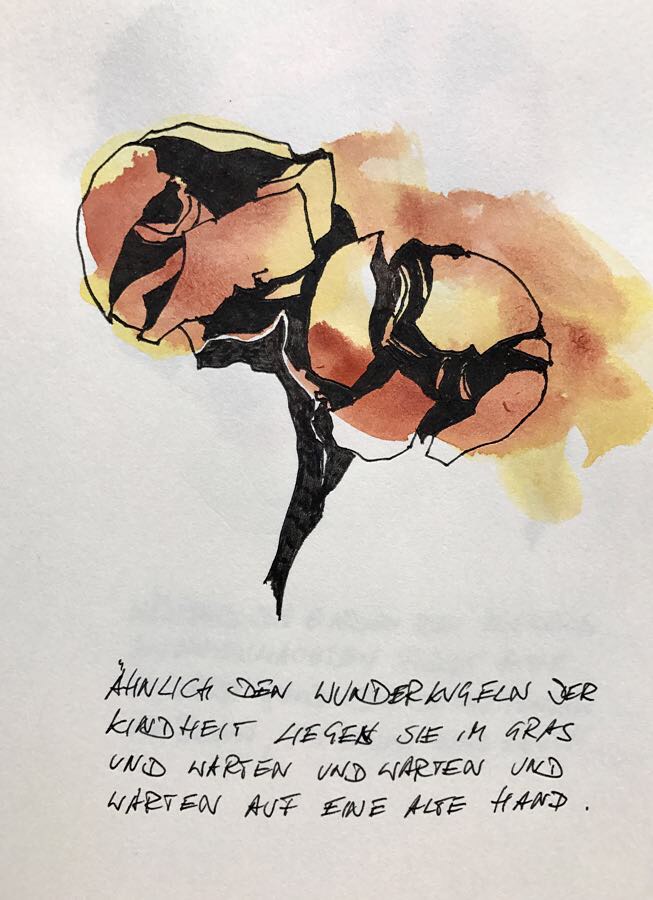 ÄHNLICH DEN WUNDERKUGELN DER
KINDHEIT LIEGEN SIE IM GRAS
UND WARTEN UND WARTEN UND
WARTEN AUF EINE ALTE HAND.